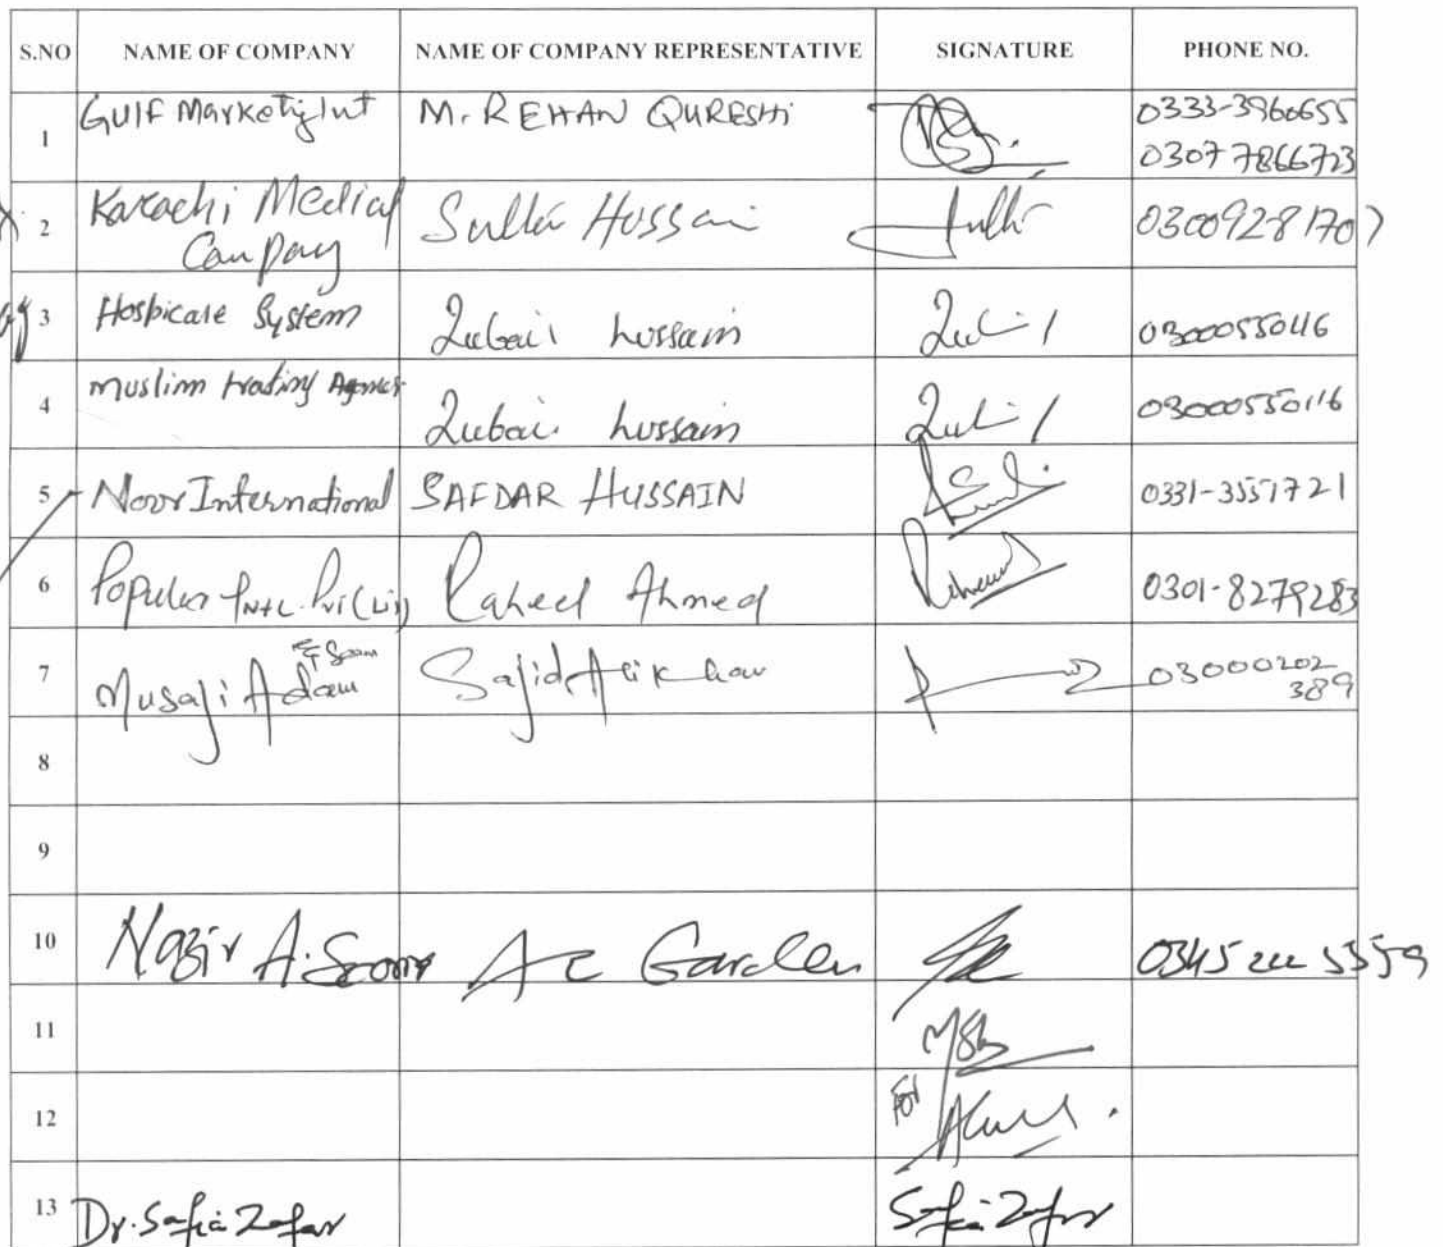 S.NO NAME OF COMPANY NAME OF COMPANY REPRESENTATIVE SIGNATURE PHONE NO.
1 Gulf Marketing Int M. REHAN QURESHI 0333-3960655
03077866723
2 Karachi Medical Sullu Hussain 03009281707
Company
3 Hospicare System Zubair hussain Zubair 03000550116
4 Muslim trading Agencies Zubair hussain Zubair 03000550116
5 Noor International SAFDAR HUSSAIN 0331-3557721
6 Popular Intl. Pvt (Ltd) Raheel Ahmed 0301-8279283
7 Musaji Adam & Sons Sajid Ali Khan 03000202
389
8
9
10 Nazir A. Soomro AC Garden 0345 222 5559
11
12 For
13 Dr. Safia Zafar Safia Zafar